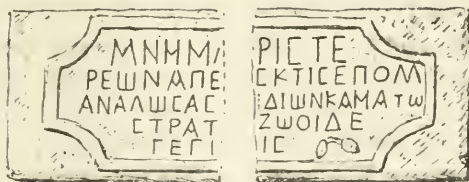 ΜΝΗΜΑ ΡΙϹΤΕ
ΡΕШΝΑΠΕ ϹΚΤΙϹΕΠΟΛΛ
ΑΝΑΛШϹΑϹ ΔΙШΝΚΑΜΑΤω
ϹΤΡΑΤ ΖШΟΙΔΕ
ΓΕΓΙ ΙϹ